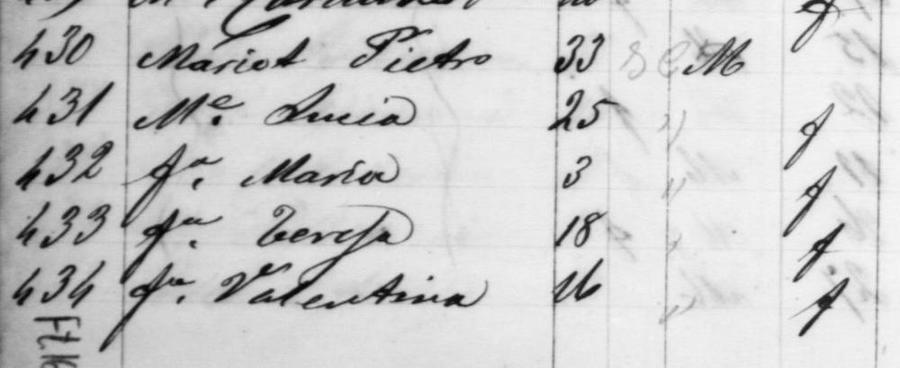 430 Mariot Pietro 33 M
431 Mᵉ. Lucia 25 " f
432 fᵃ. Maria 3 " f
433 fᵃ. Teresa 18 " f
434 fᵃ. Valentina 16 " f